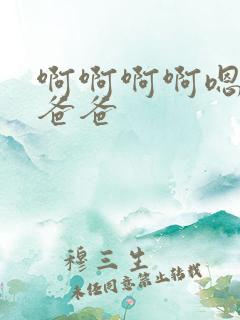 啊啊啊啊嗯
爸爸
穆三生
未经同意禁止转载